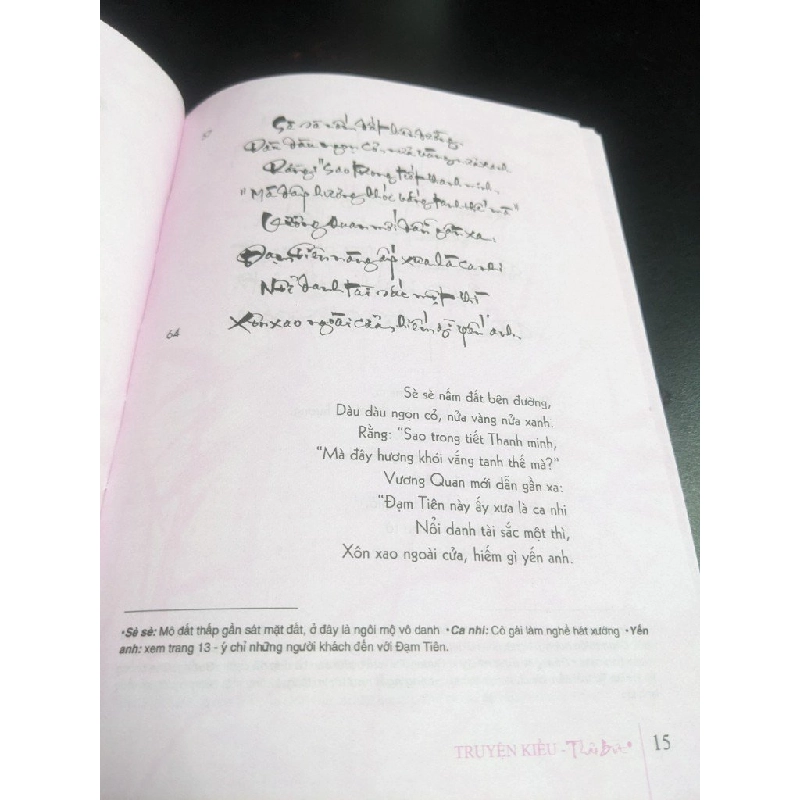 Sè sè nấm đất bên đường
Dàu dàu ngọn cỏ, nửa vàng nửa xanh
Rằng: "Sao trong tiết thanh minh,
"Mà đây hương khói vắng tanh thế mà"
Vương Quan mới dẫn gần xa,
Đạm Tiên nàng ấy xưa là ca nhi
Nổi danh tài sắc một thì
64 Xôn xao ngoài cửa, hiếm gì yến anh
Sè sè nấm đất bên đường,
Dàu dàu ngọn cỏ, nửa vàng nửa xanh.
Rằng: "Sao trong tiết Thanh minh,
"Mà đây hương khói vắng tanh thế mà?"
Vương Quan mới dẫn gần xa:
"Đạm Tiên này ấy xưa là ca nhi
Nổi danh tài sắc một thì,
Xôn xao ngoài cửa, hiếm gì yến anh.
•Sè sè: Mô đất thấp gần sát mặt đất, ở đây là ngôi mộ vô danh •Ca nhi: Cô gái làm nghề hát xướng •Yến
anh: xem trang 13 - ý chỉ những người khách đến với Đạm Tiên.
TRUYỆN KIỀU - 15